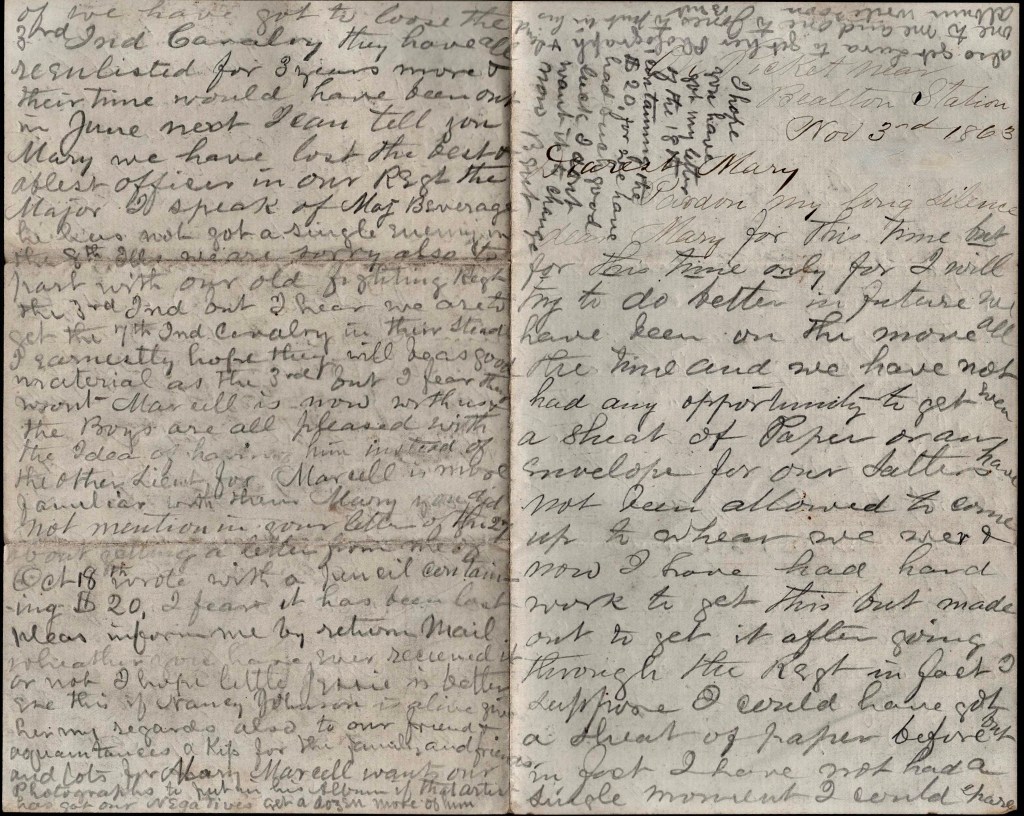 On Picket near
Bealton Station
Nov 3rd 1863
Dearest Mary
Pardon my long silence
dear Mary for this time but
for this time only for I will
try to do better in future we
have been on the move all
the time and we have not
had any opportunity to get even
a sheat of Paper or an
envelope for our Sutler have
not been allowed to come
up to whear we were &
now I have had hard
work to get this but made
out to get it after going
through the Regt in fact I
suppose I could have got
a sheat of paper before but
in fact I have not had a
single moment I could spare
I hope
you have
got my letter
of the 18th
containing the
$20, for we have
had bad luck & good
luck I dont
want it to change
now
also get Lura to get her Photograph
one to me and one to
album write soon
of we have got to loose the
3rd Ind Cavalry they have all
reenlisted for 3 years more &
their time would have been out
in June next I can tell you
Mary we have lost the best &
ablest officer in our Regt the
Major I speak of Maj Beverage
he has not got a single enemy in
the 8th Ills we are sorry also to
part with our old fighting Regt
the 3rd Ind but I hear we are to
get the 7th Ind Cavalry in their stead
I earnestly hope they will be as good
material as the 3rd but I fear they
wont Marcell is now with us &
the Boys are all pleased with
the Idea of having him instead of
the other Lieut for Marcell is more
familiar with them Mary you did
not mention in your letter of the 27
about getting a letter from me of
Oct 18th wrote with a Pencil contain
-ing $20, I fear it has been lost
pleas inform me by return Mail
wheather you have ever received it
or not I hope little Jessie is better
ere this if Nancy Johnson is alive give
her my regards also to our friends &
aquaintances a Kiss for the family and friends
and lots for Mary Marcell wants our
Photographs to put in his Album if that artist
has got our Negatives get a dozen more of him